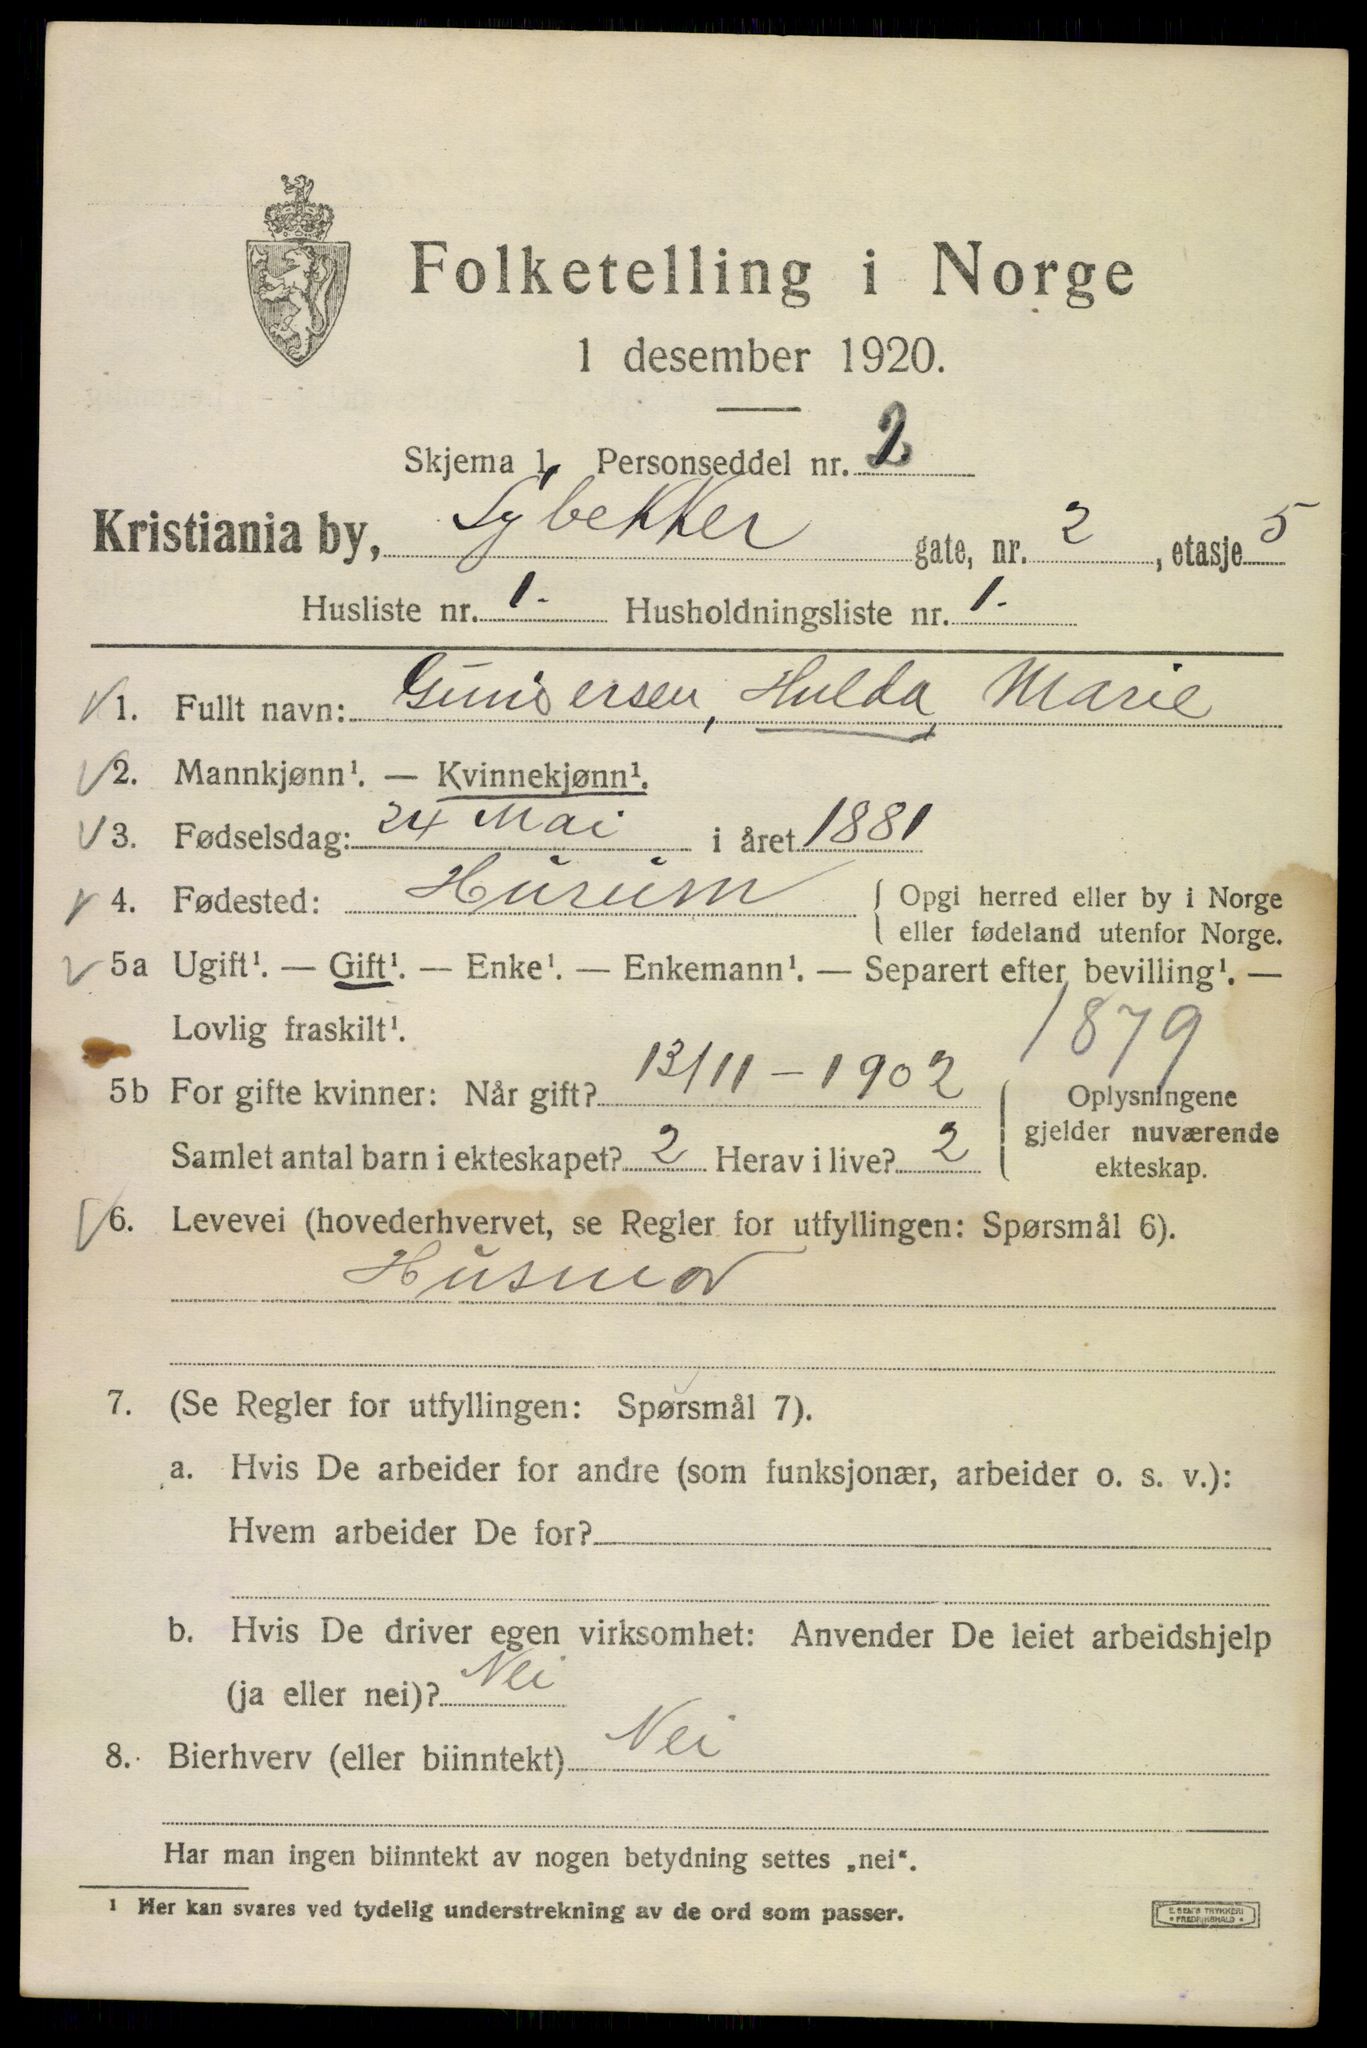 Folketelling i Norge
1 desember 1920.
Skjema 1. Personseddel nr. 2
Kristiania by, Lybekker gate, nr. 2, etasje 5
Husliste nr. 1. Husholdningsliste nr. 1.
1. Fullt navn: Gundersen, Hulda Marie
2. Mannkjønn¹. — Kvinnekjønn¹.
3. Fødselsdag: 24 Mai i året 1881
4. Fødested: Hurum { Opgi herred eller by i Norge
eller fødeland utenfor Norge.
5a Ugift¹. — Gift¹. — Enke¹. — Enkemann¹. — Separert efter bevilling¹. —
Lovlig fraskilt¹.
1879
5b For gifte kvinner: Når gift? 13/11 - 1902
Samlet antal barn i ekteskapet? 2 Herav i live? 2
Oplysningene
gjelder nuværende
ekteskap.
6. Levevei (hovederhvervet, se Regler for utfyllingen: Spørsmål 6).
Husmor
7. (Se Regler for utfyllingen: Spørsmål 7).
a. Hvis De arbeider for andre (som funksjonær, arbeider o. s. v.):
Hvem arbeider De for?
b. Hvis De driver egen virksomhet: Anvender De leiet arbeidshjelp
(ja eller nei)? Nei
8. Bierhverv (eller biinntekt) Nei
Har man ingen biinntekt av nogen betydning settes „nei“.
¹ Her kan svares ved tydelig understrekning av de ord som passer.
E. SEM'S TRYKKERI
* FREDRIKSHALD *